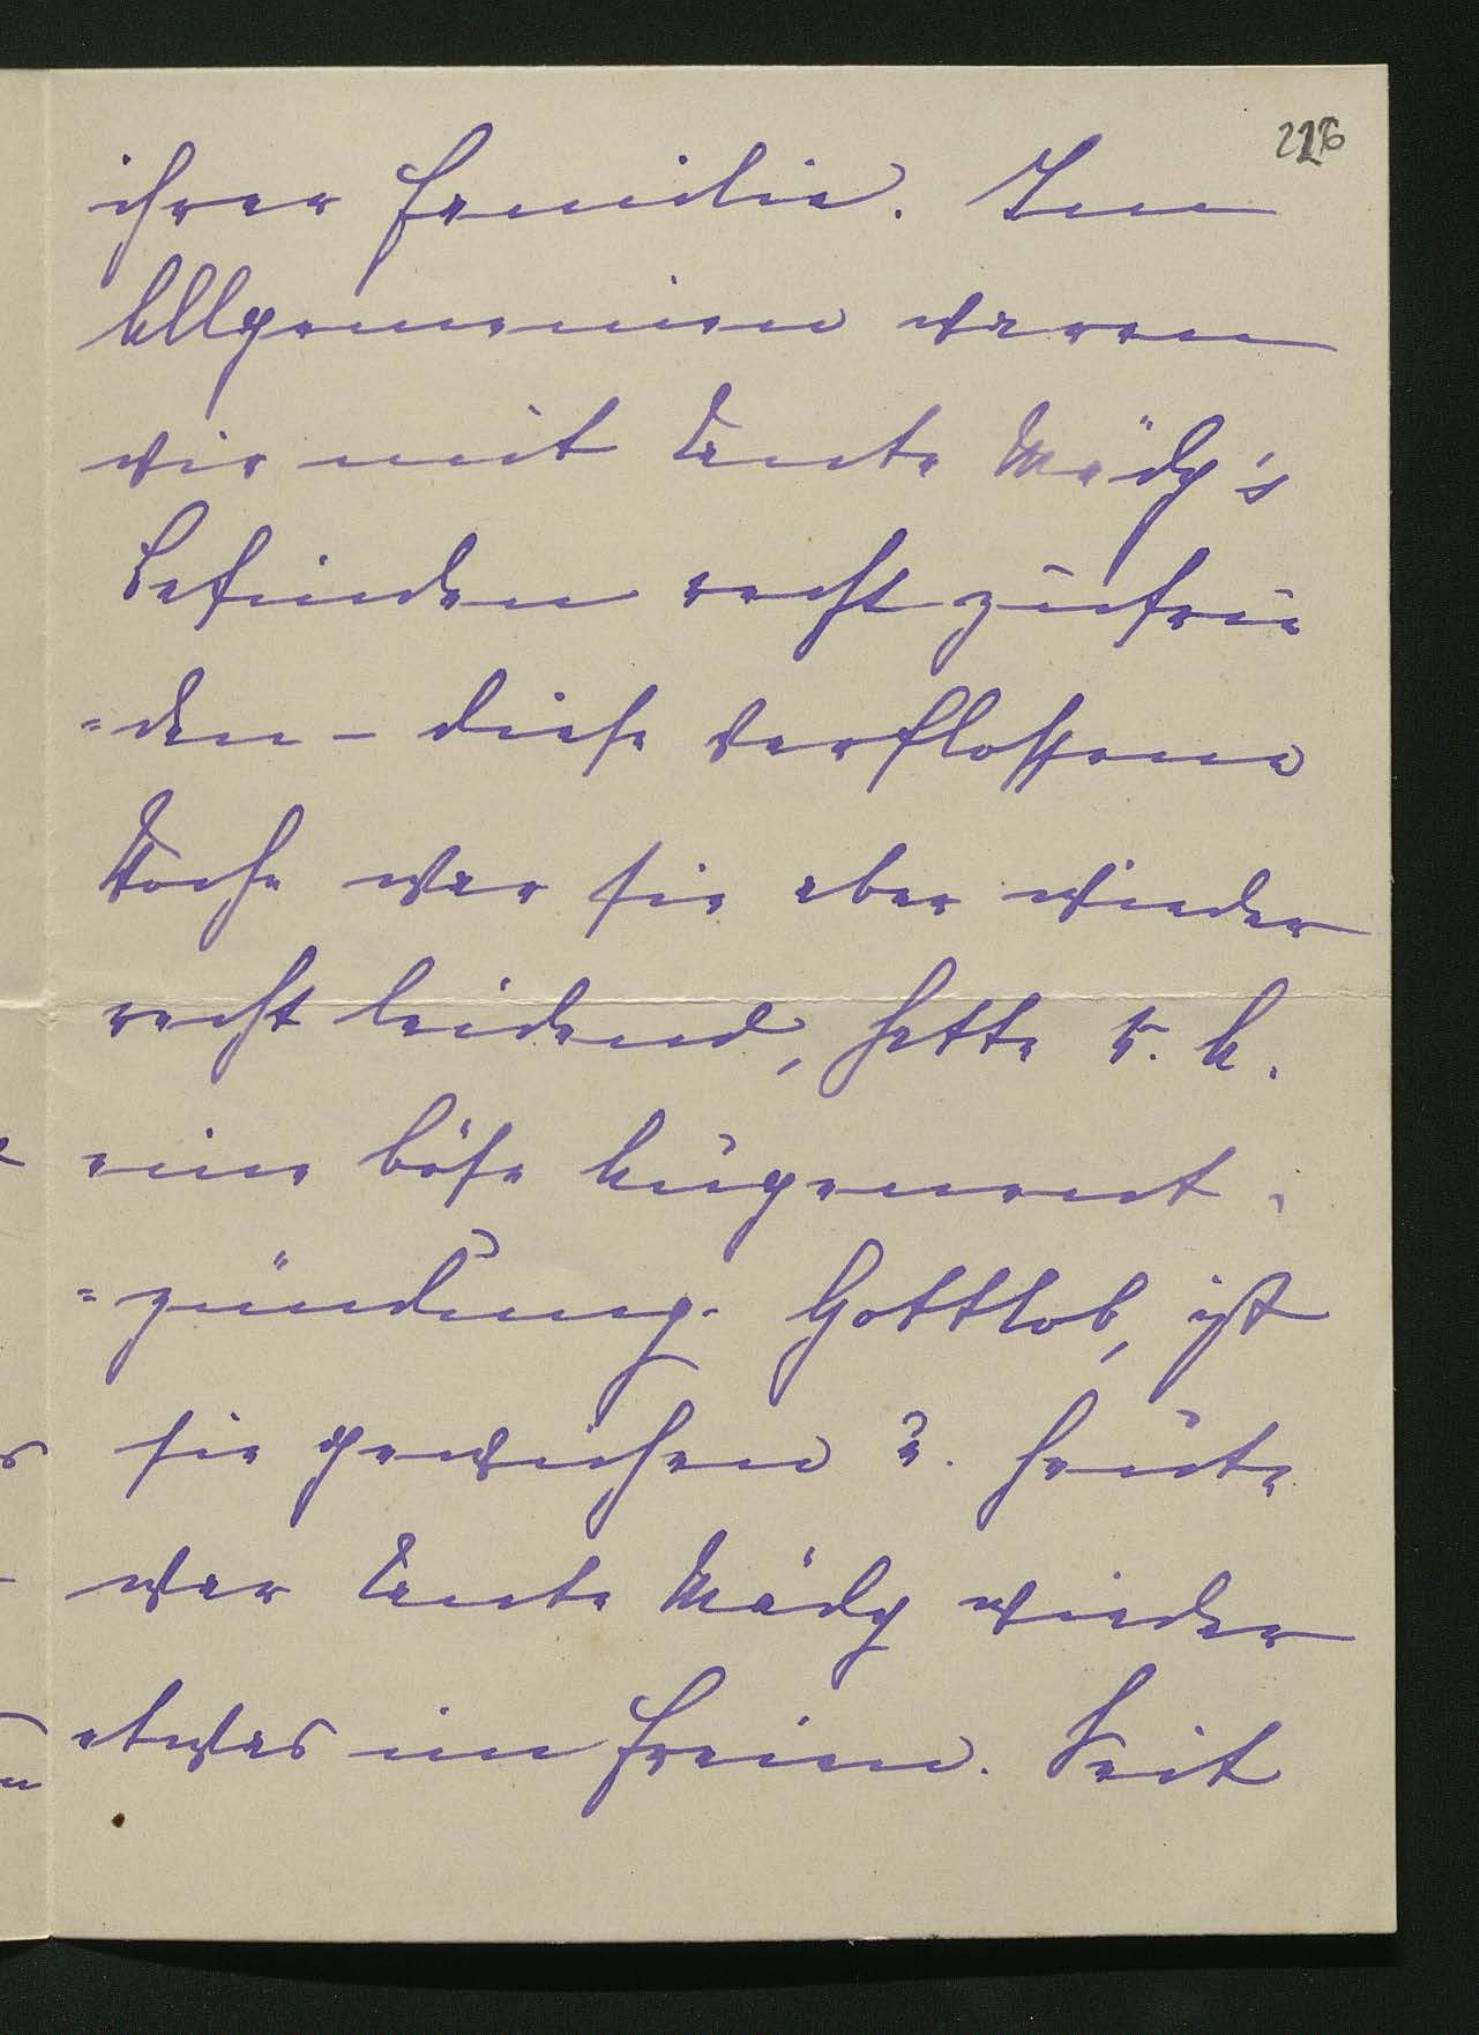 226
ihrer Familie. Im
Allgemeinen waren
wir mit Tante Mädy's
Befinden recht zufrie
=den – diese verflossene
Woche war sie aber wieder
recht leidend, hatte u. A.
eine böse Augenent-
=zündung. Gottlob, ist
sie gewichen u. heute
war Tante Mädy wieder
etwas im Freien. Seit